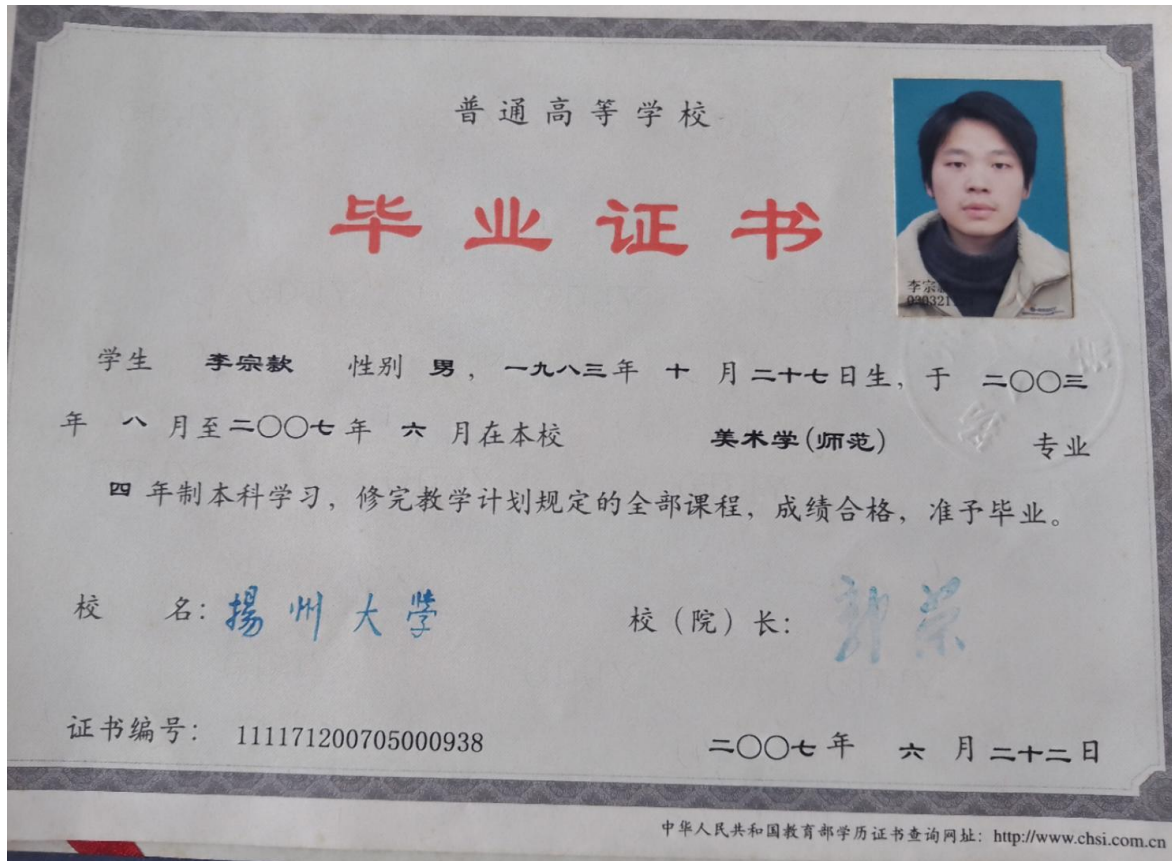 普通高等学校
毕业证书
李宗
学生 李宗款 性别 男，一九八三年 十 月二十七日生，于 二〇〇三
年 八 月至二〇〇七年 六 月在本校 美术学(师范) 专业
四 年制本科学习，修完教学计划规定的全部课程，成绩合格，准予毕业。
校 名：揚州大學 校（院）长：郭荣
证书编号： 111171200705000938 二〇〇七年 六 月二十二日
中华人民共和国教育部学历证书查询网址：http://www.chsi.com.cn